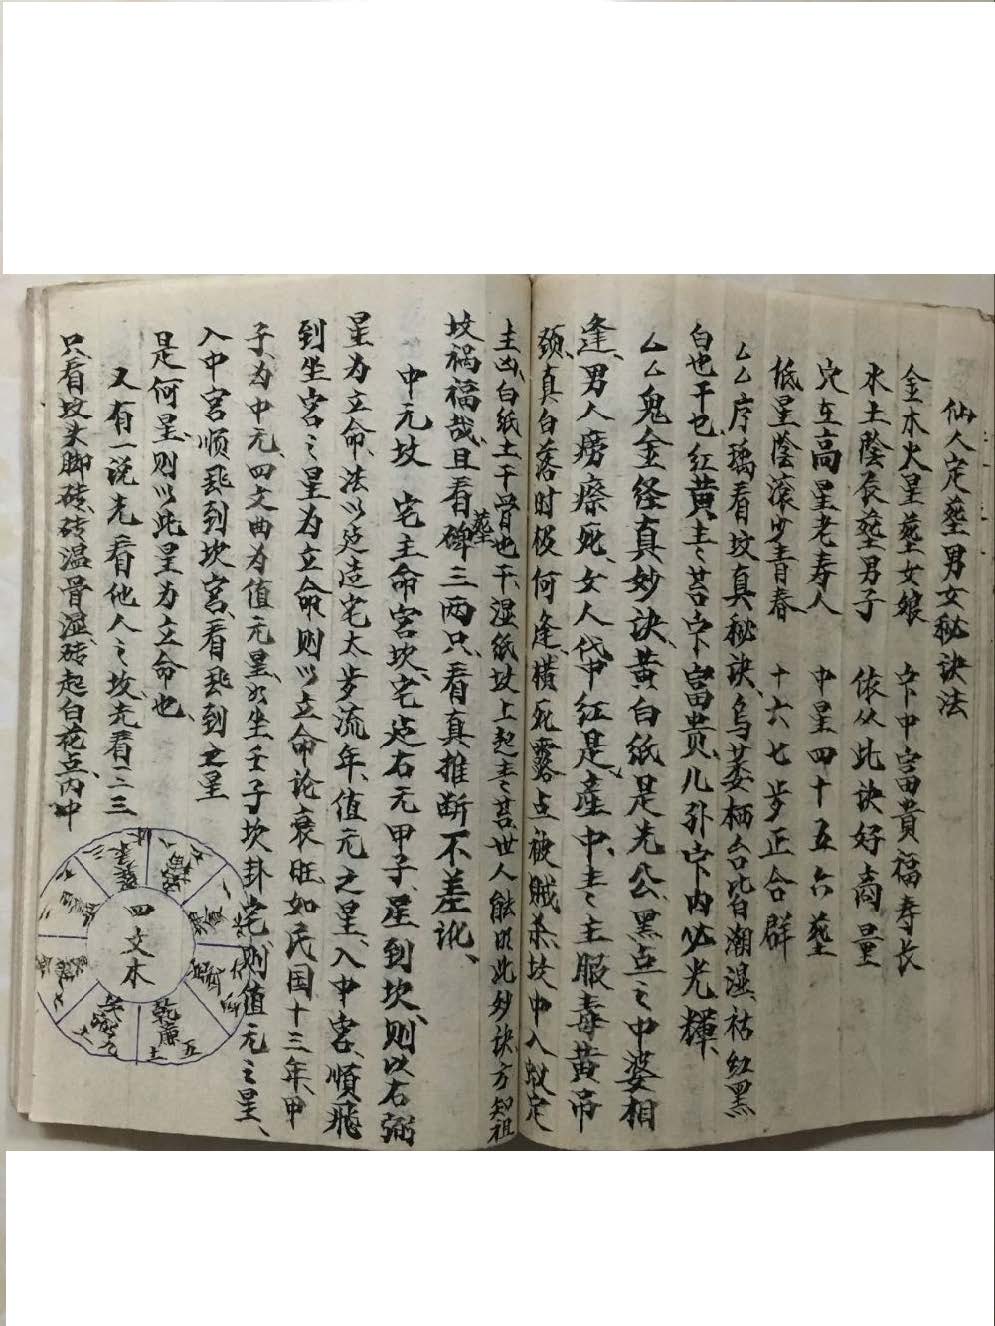 仙人定墓男女秘诀法
金木火星墓女娘 中富貴福寿长
水土蔭辰墓男子 依从此诀好商量
穴在高星老寿人 中星四十五六墓
低星蔭滚少青春 十六七岁正合群
厶厶序瑀看坟真秘诀、乌萎栖台皆白潮湿、祜红黑
白也干也、红黄圭圭苔宀富贵、儿孙宀内必光輝、
厶厶鬼金径真妙诀、黄白纸是先公、黑点之中婆相
逢、男人痨瘵死、女人代中红是產中、圭圭主服毒黄吊
颈、真白落时极何逢、横死露点被贼杀、坟中入蚁定
主凶、白纸土干骨也干、湿纸坟上起圭圭苔、世人能明此妙诀、方知祖
坟祸福哉、且看碑墓三两只、看真推断不差讹、
中元坟 宅主命宫坎、宅造右元甲子、星到坎、则以右弼
星为立命、法以造造宅太岁流年、值元之星、入中宫、順飛
到坐宫之星为立命、则以立命论衰旺、如民国十三年、甲
子、为中元、四文曲为值元星、如坐壬子坎卦宅则值元之星、
入中宫顺飛到坎宫、看飛到之星
是何星、则以此星为立命也、
又有一说先看他人之坟、先看二三
只、看坟头脚砖、砖温骨湿、砖起白花点、内中
四文木
乾廉
五
土